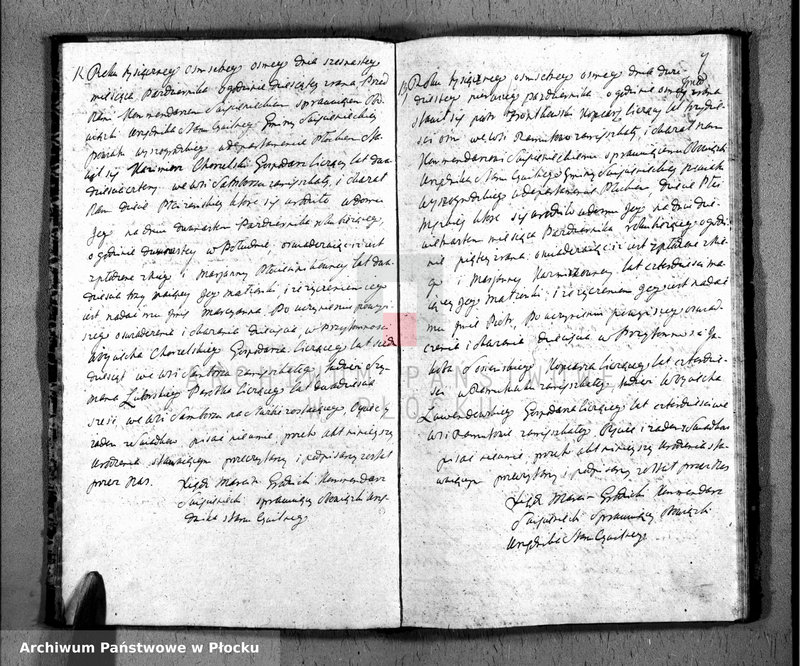 Roku tysięcznego osmsetnego osmego dnia szesnastego
miesiąca Pazdziernika o godzinie dziesiątej zrana. Przed
Nami Kommendarzem sprawuiącym Obo-
wiązki Urzędnika Stanu Cywilnego Gminy
Powiatu wyszogrodzkiego w departamencie Płockim Sta-
wił się Kazimierz Choruski Gospodarz liczący lat dwa
dziescia cztery we wsi zamieszkały, i okazał
Nam dziecie Płci żenskiej które się urodziło w domu
Jego na dniu dwunastym Pazdziernika roku bieżącego,
o godzinie dwunastej w Południe, oswiadczaiąc iż iest
spłodzone z niego i Maryanny lat dwa-
dziescia trzy maiącej Jego małżonki i iż życzeniem iego
iest nadać mu Imie Maryanna, Po uczynieniu powyż-
szego oswiadczenia i okazania dziecięcia, w Przytomności
Woyciecha Choruskiego Gospodarza liczącego lat
dziesiąt we wsi zamieszkałego, tudzież Szy-
mona Parobka liczącego lat dwadziescia
szesć, we wsi na służbie zostaiącego, Oyciec y
zaden z Swiadków pisać nieumie, przeto akt ninieyszy
Urodzenia stawaiącym przeczytany i podpisany został
przez Nas.
Xiądz Marcin Kommendarz
sprawuiący Obowiązki Urzę-
dnika Stanu Cywilnego
Roku tysięcznego osmsetnego osmego dnia dwu-
dziestego pierwszego pazdziernika o godzinie osmej zrana
przed
stawił się piotr Kopiarz liczący lat trzydzie-
sci osm we wsi Ramutowo zamieszkały, i okazał nam
Kommendarzowi sprawuiącemu Obowiązki
Urzędnika Stanu Cywilnego Gminy Powiatu
Wyszogrodzkiego w departamencie Płockim, dziecie Płci
Męzkiej które się urodziło w domu Jego na dniu dzie-
wietnastym miesiąca Pazdziernika roku bieżącego o godzi-
nie piątej zrana oswiadczaiąc iż iest spłodzone z nie-
go i Maryanny lat czterdziesci ma-
iącej Jego małżonki i iż życzeniem Jego iest nadać
mu Imie Piotr, Po uczynieniu powyższego oswiad-
czenia i okazania dziecięcia w Przytomności Ja-
kóba Kopiarza liczącego lat czterdzie-
sci w zamieszkałego tudzież Woyciecha
Gospodarza liczącego lat czterdziesci we
wsi Ramutowie zamieszkałego. Oyciec i zaden z Swiadków
pisać nieumie, przeto akt ninieyszy Urodzenia sta-
waiącym przeczytany i podpisany został przez Nas
Xiądz Marcin Kommendarz
Sprawuiący Obowiązki
Urzędnika Stanu Cywilnego
ARCHIWUM PAŃSTWOWE
W PŁOCKU
Archiwum Państwowe w Płocku